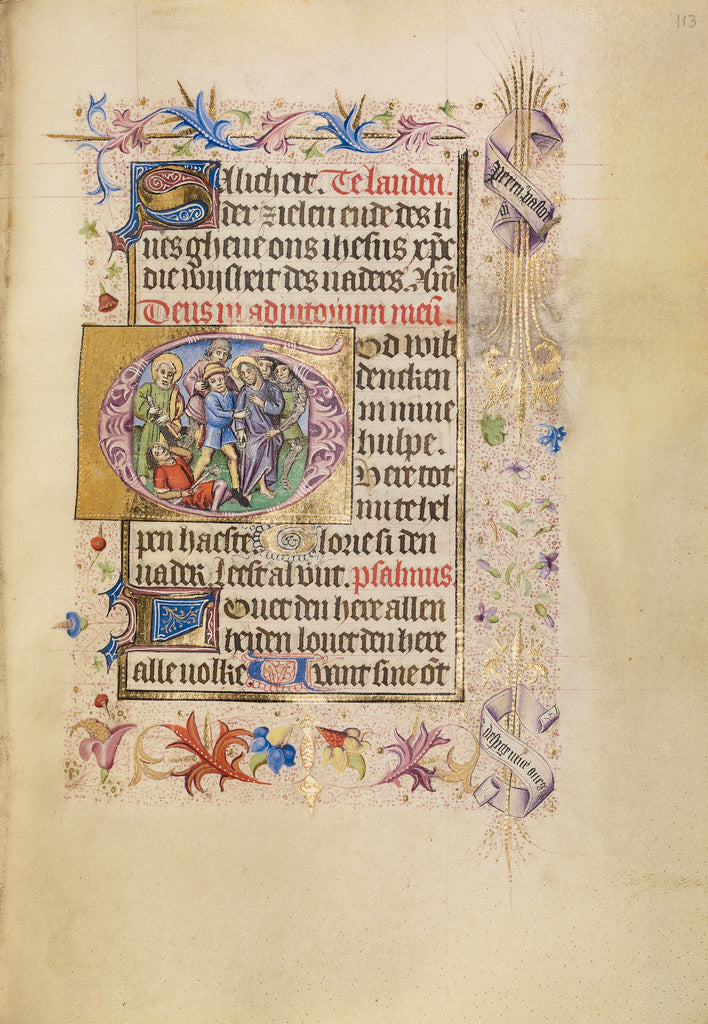 113
Salicheit. Te lauden.
der zielen ende des li
ues gheue ons ihesus xpc
die wijsheit des uaders. Am̄
Deus in adiutorium meū.
God wilt
dencken
in mine
hulpe.
Here tot
mi te hel
pen haeste Glorie si den
uader. Leest al vut. psalmus.
Louet den here allen
heiden louet den here
alle uolke Want sine ōt